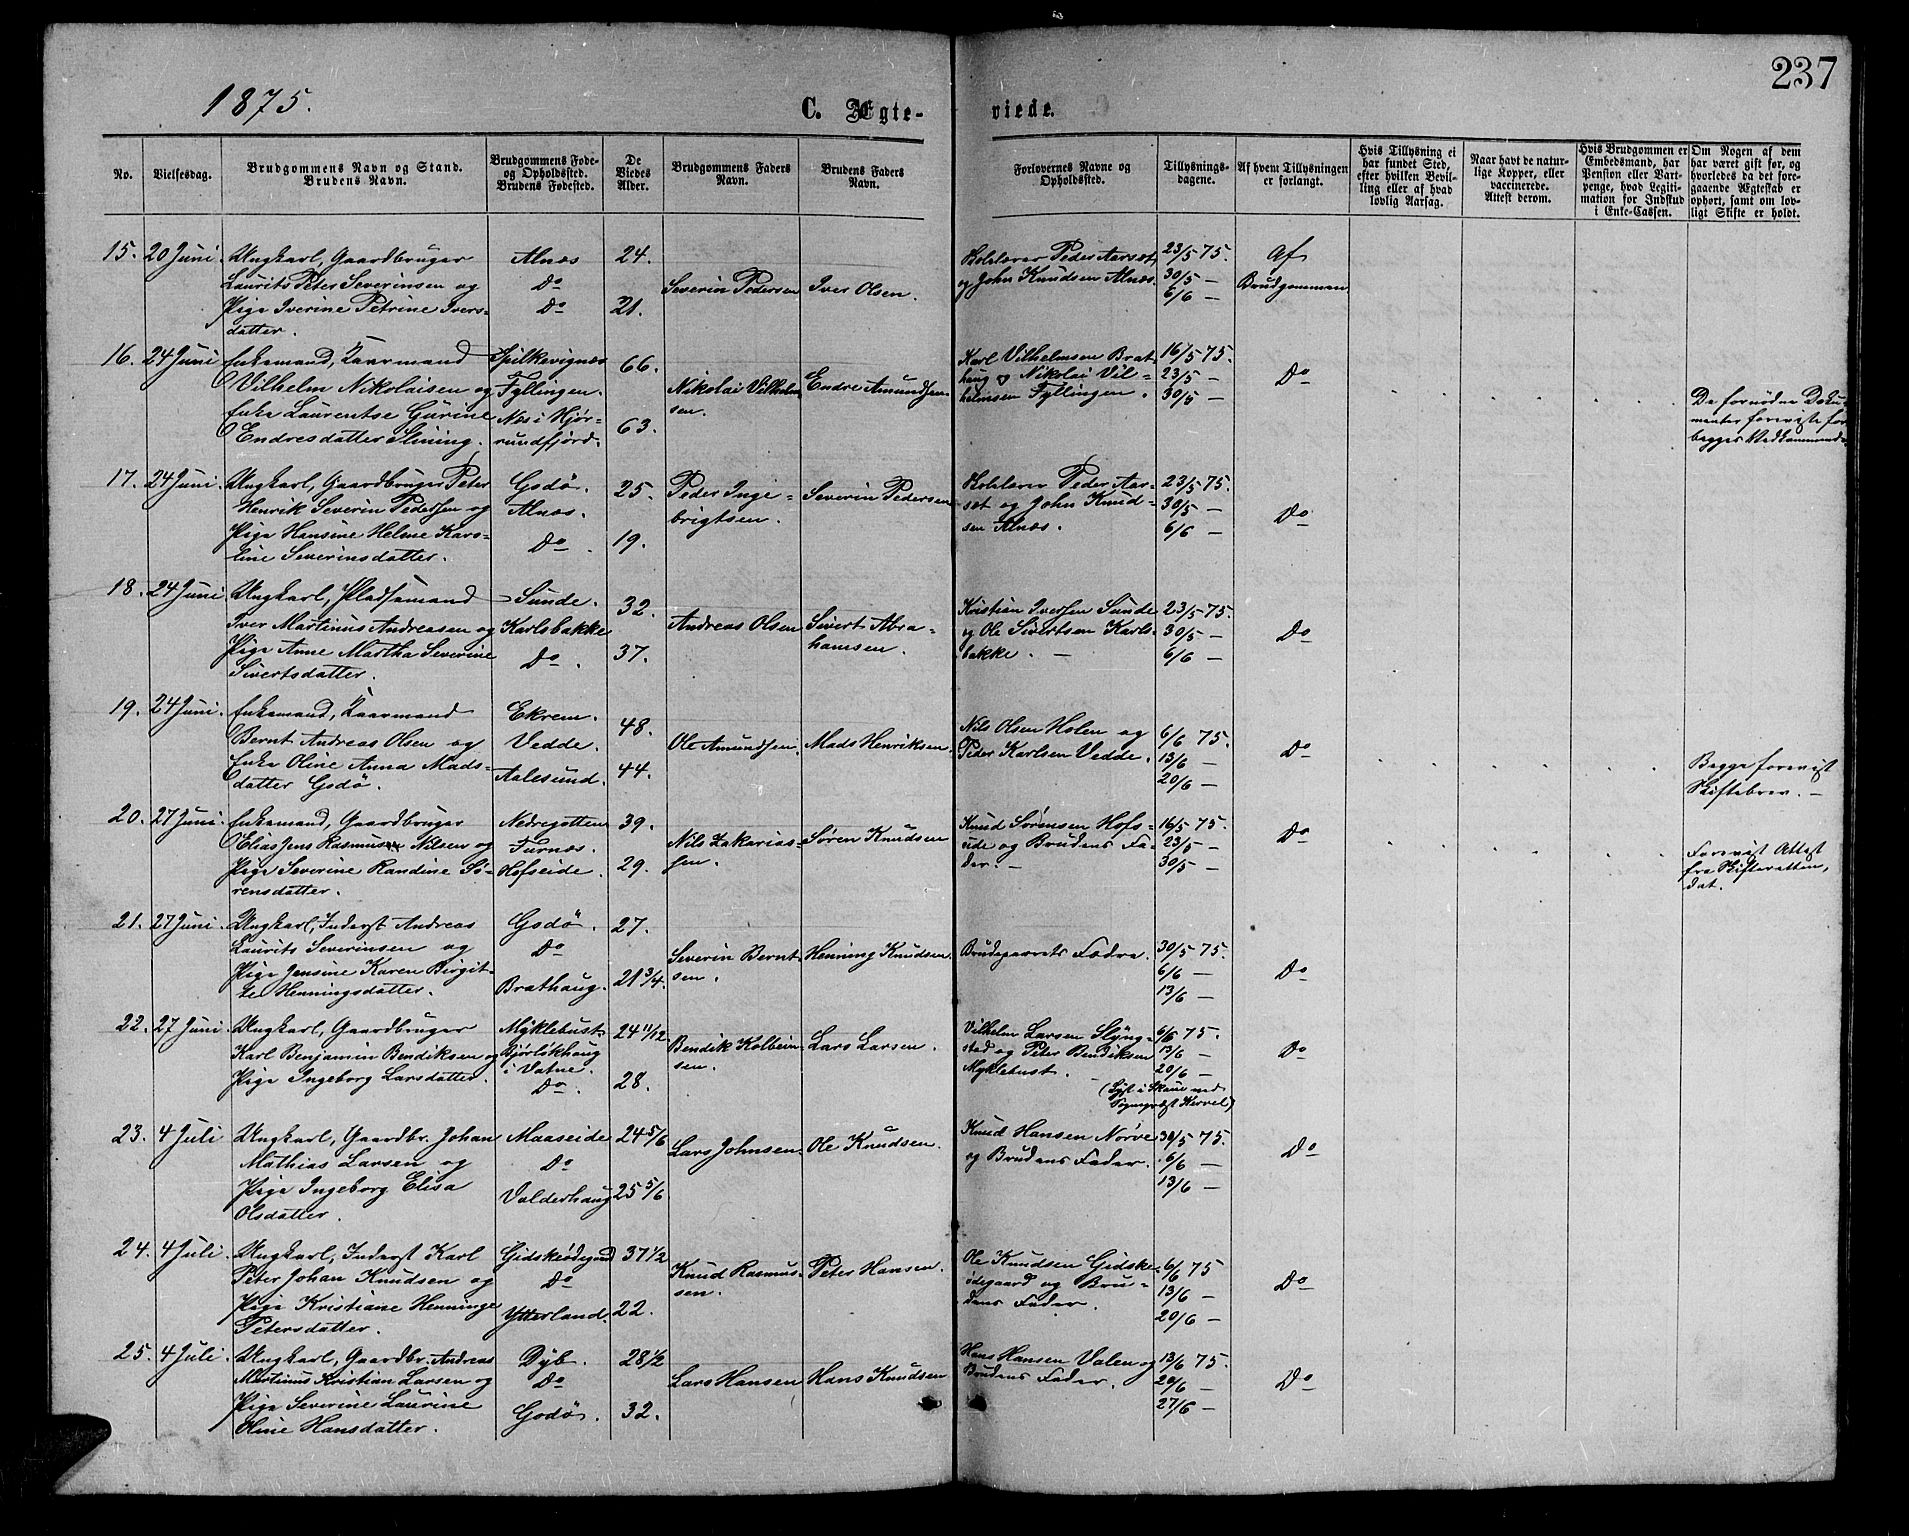 237
1875.
C. Ægte-
viede.
No.
Vielsesdag.
Brudgommens Navn og Stand.
Brudens Navn.
Brudgommens Føde-
og Opholdssted.
Brudens Fødested.
De
Viedes
Alder.
Brudgommens Faders
Navn.
Brudens Faders
Navn.
Forlovernes Navne og
Opholdssted.
Tillysnings-
dagene.
Af hvem Tillysningen
er forlangt.
Hvis Tillysning ei
har fundet Sted,
efter hvilken Bevil-
ling eller af hvad
lovlig Aarsag.
Naar havt de natur-
lige Kopper, eller
vaccinerede.
Attest derom.
Hvis Brudgommen er
Embedsmand, har
Pension eller Vart-
penge, hvad Legiti-
mation for Indskud
i Enke-Cassen.
Om Nogen af dem
har været gift før, og
hvorledes da det fore-
gaaende Ægteskab er
ophørt, samt om lov-
ligt Skifte er holdt.
15. 20 Juni
Ungkarl, Gaardbruger
Laurits Peter Severinsen og
Pige Iverine Petrine Ivers-
datter.
Alnæs
Do
Do
24.
21.
Severin Pedersen
Iver Olsen.
Kolelærer Peder Aarset
og John Knudsen Alnæs.
23/5 75.
30/5 —
6/6 —
Af
Brudgommen
16. 24 Juni
Enkemand, Kaarmand
Vilhelm Nikolaisen og
Enke Laurentse Gurine
Endresdatter Slining.
Spilkevignæs
Fyllingen.
Næs i Hjør-
rundfjord.
66.
63.
Nikolai Vilhelm-
sen.
Endre Amundsen.
Karl Vilhelmsen Brat-
haug og Nikolai Vil-
helmsen Fyllingen.
16/5 75.
23/5 —
30/5 —
Do
De fornødne Doku-
menter foreviste for
begges Vedkommende
17. 24 Juni
Ungkarl, Gaardbruger Peter
Henrik Severin Pedersen og
Pige Hansine Helene Karo-
line Severinsdatter.
Godø.
Alnæs.
Do.
25.
19.
Peder Inge-
brigtsen.
Severin Pedersen
Kolelærer Peder Aar-
set og John Knud-
sen Alnæs.
23/5 75.
30/5 —
6/6 —
Do
18. 24 Juni
Ungkarl, Pladsemand
Iver Martinus Andreasen og
Pige Anne Martha Severine
Sivertsdatter.
Sunde.
Karlsbakke
Do.
32.
37.
Andreas Olsen
Sivert Abra-
hamsen.
Kristian Iversen Sunde
og Ole Sivertsen Karls-
bakke. —
23/5 75.
30/5 —
6/6 —
Do
19. 24 Juni.
Enkemand, Kaarmand
Bernt Andreas Olsen og
Enke Oline Anna Mads-
datter Godø.
Ekrem.
Vedde.
Aalesund.
48.
44.
Ole Amundsen
Mads Henriksen.
Nils Olsen Holen og
Peder Karlsen Vedde.
6/6 75.
13/6 —
20/6 —
Do
Begge forevist
Skiftebrev. —
20. 27 Juni.
Enkemand, Gaardbruger
Elias Jens Rasmusen Nilsen og
Pige Severine Randine Sø-
rensdatter.
Nedregotten
Turnæs.
Hofseide.
39.
29.
Nils Zakarias-
sen.
Søren Knudsen
Knud Sørensen Hofs-
eide og Brudens Fa-
der. —
16/5 75.
23/5 —
30/5 —
Do
Forevist Attest
fra Skifteretten,
dat.
21. 27 Juni.
Ungkarl, Inderst Andreas
Laurits Severinsen og
Pige Jensine Karen Birgit-
te Henningsdatter.
Godø.
Do
Brathaug.
27.
21 3/4.
Severin Bernt-
sen.
Henning Knudsen.
Brudeparrets Fædre.
30/5 75.
6/6 —
13/6 —
Do
22. 27 Juni.
Ungkarl, Gaardbruger
Karl Benjamin Bendiksen og
Pige Ingeborg Larsdatter.
Myklebust
Bjørløkhaug
i Vatne.
Do.
24 11/12
28.
Bendik Kolbein-
sen.
Lars Larsen.
Vilhelm Larsen Slyng-
stad og Peter Bendiksen
Myklebust. —
6/6 75.
13/6 —
20/6 —
(Lyst i Skoue ved
Sognepræst Hervel)
Do
23. 4 Juli
Ungkarl, Gaardbr. Johan
Mathias Larsen og
Pige Ingeborg Elisa
Olsdatter.
Maaseide
Do
Valderhaug
24 5/6
25 5/6
Lars Johnsen.
Ole Knudsen.
Knud Hansen Nørve
og Brudens Fader.
30/5 75.
6/6 —
13/6 —
Do
24. 4 Juli.
Ungkarl, Inderst Karl
Peter Johan Knudsen og
Pige Kristiane Henninge
Petersdatter.
Gidskeødegrd
Do
Ytterland.
37 1/2
22.
Knud Rasmus-
sen.
Peter Hansen.
Ole Knudsen Gidske-
ødegaard og Bru-
dens Fader.
6/6 75
13/6 —
20/6 —
Do
25. 4 Juli.
Ungkarl, Gaardbr. Andreas
Martinus Kristian Larsen og
Pige Severine Laurine
Oline Hansdatter.
Dyb.
Do
Godø.
28 1/2
32.
Lars Hansen
Hans Knudsen
Hans Hansen Valen og
Brudens Fader.
13/6 75.
20/6 —
27/6 —
Do